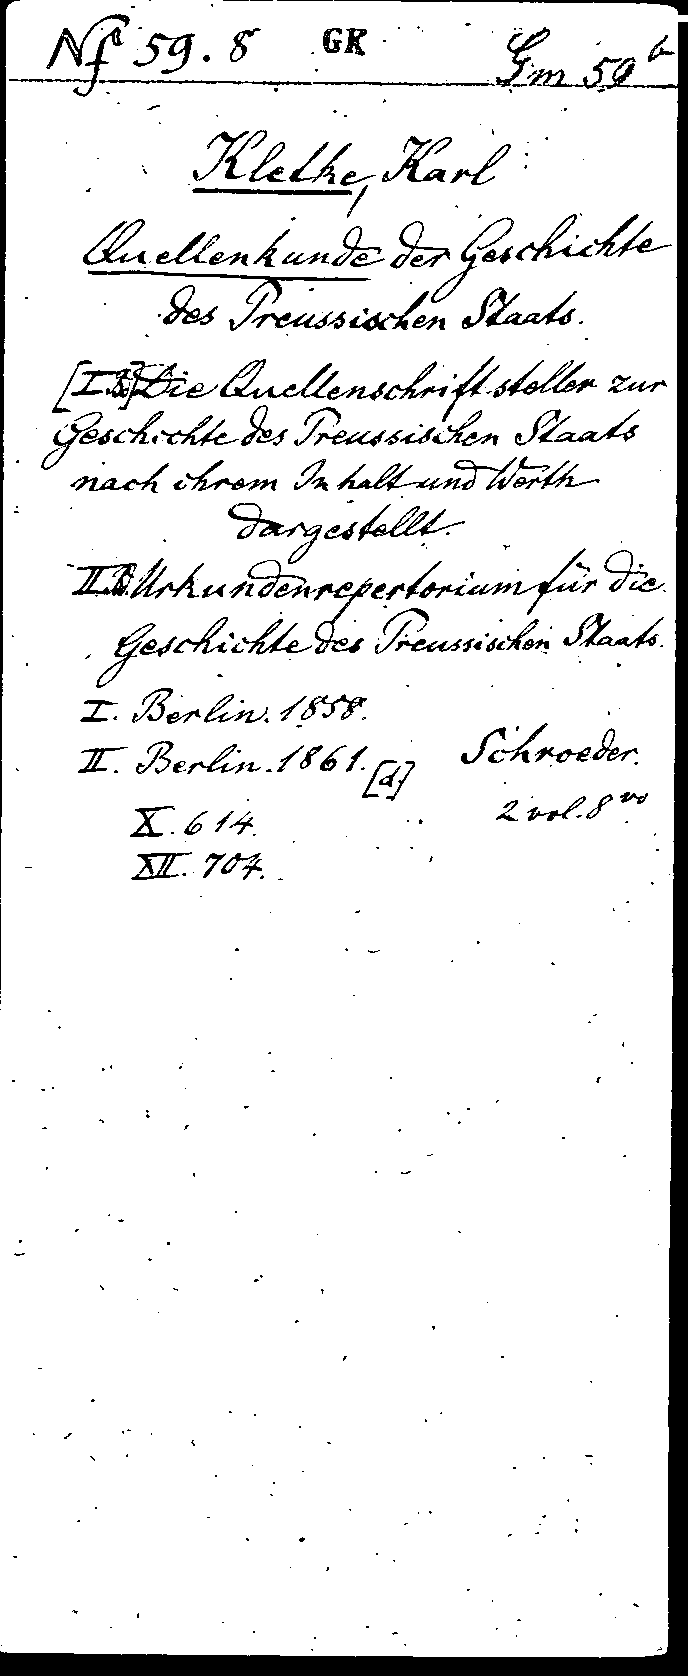 Nf 59. 8 GK Gm 50 b
Kletke, Karl
Quellenkunde der Geschichte
des Preussischen Staats.
[I.] Die Quellenschriftsteller zur
Geschichte des Preussischen Staats
nach ihrem Inhalt und Werth
dargestellt.
II. Urkundenrepertorium für die
Geschichte des Preussischen Staats.
I. Berlin. 1858.
II. Berlin. 1861. [d.] Schroeder.
X. 614. 2 vol. 8vo
XII. 704.